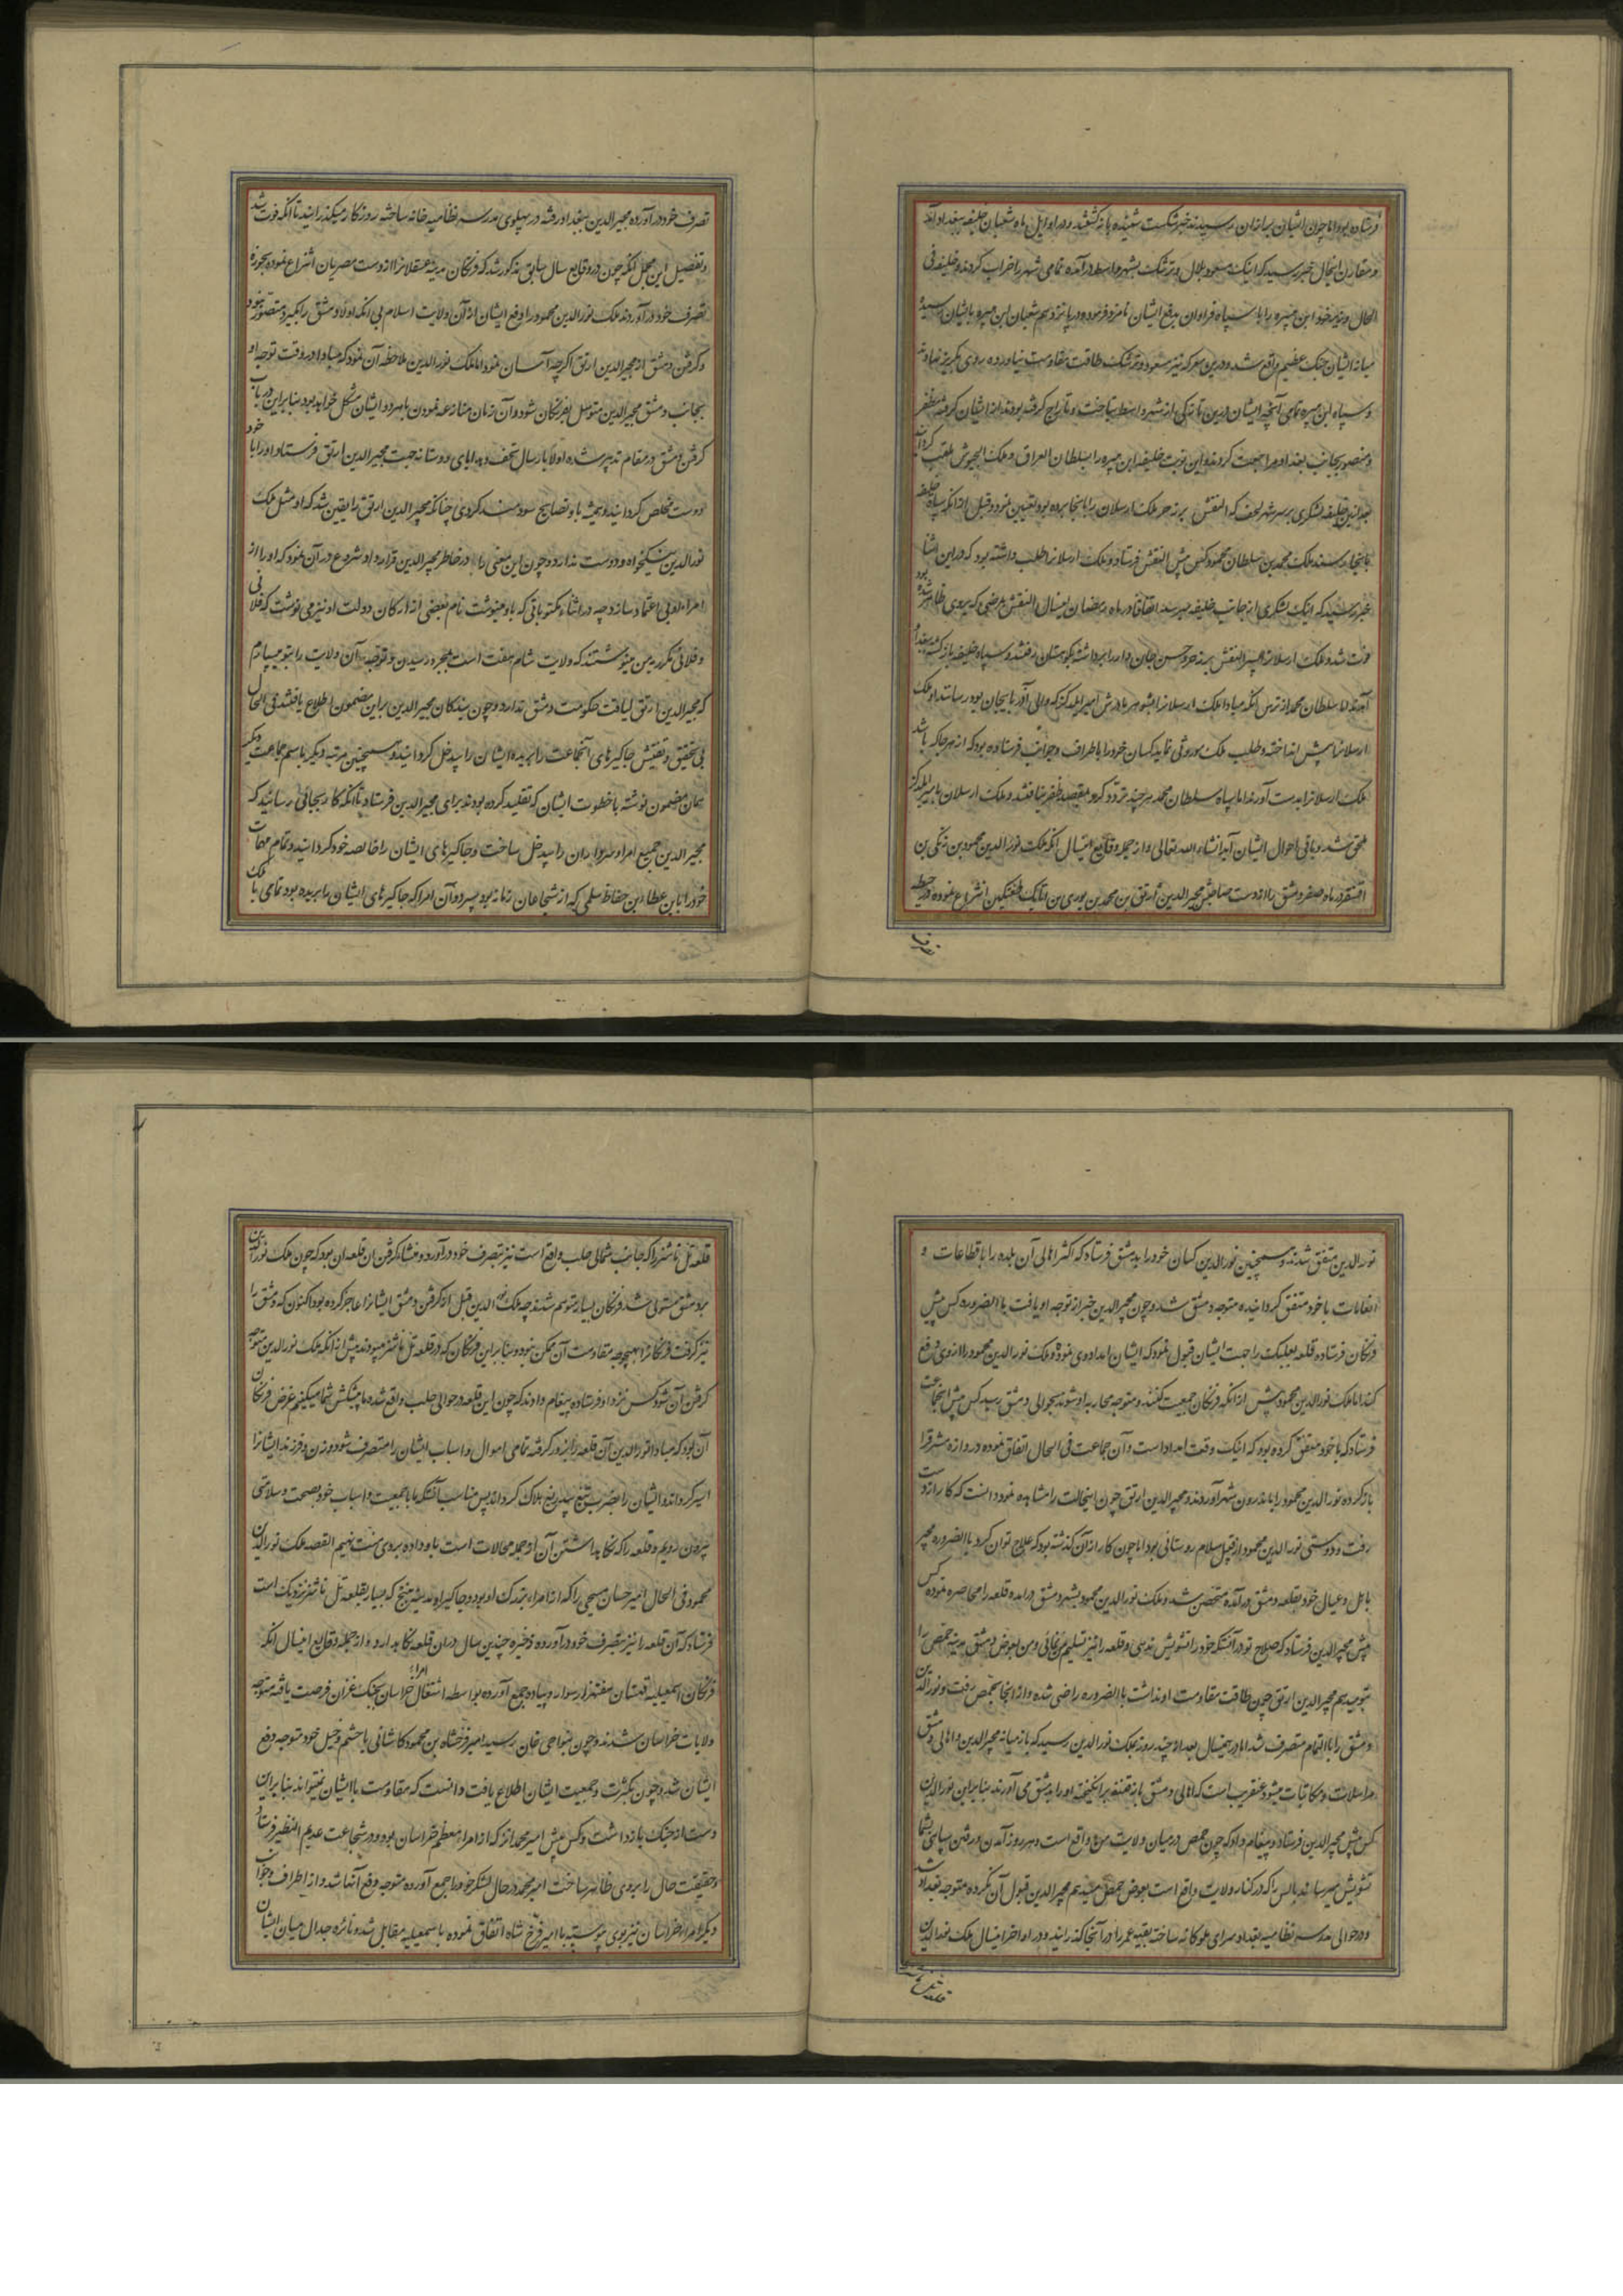 فرستاده بود اما چون ایشان بسازان رسیدند خبر شکست شنیده بازگشتند و در اوایل ماه شعبان خلیفه ببغداد آمد
و مقارن اینحال خبر رسید که اینک مسعود بلال و ترشک بشهر واسط درآمده تمامی شهر را خراب کردند و خلیفه فی
الحال وزیر خود ابن هبیره را با سپاه فراوان بدفع ایشان نامزد فرموده در پانزدهم شعبان ابن هبیره بایشان رسیده
میانه ایشان جنک عظیم واقع شد و درین معرکه نیز مسعود و ترشک طاقت مقاومت نیاورده روی بگریز نهادند
و سپاه ابن هبیره تمامی آنچه ایشان درین تازکی از شهر واسط بتاخت و تاراج کرفته بودند از ایشان کرفته مظفر
و منصور بجانب بغداد مراجعت کردند و این نوبت خلیفه ابن هبیره را بسلطان العراق و ملک الجیوش ملقب کردانید
بعد ازین خلیفه لشکری بر سر شهر لحف که البقش برنه حر ملک ارسلان را بانجا برده بود تعیین نمود و قبل از آنکه سپاه خلیفه
بانجا رسند ملک محمد بن سلطان محمود کس پیش البقش فرستاد و ملک ارسلانرا طلب داشته بود که در این اثنا
خبر رسید که اینک لشکری از جانب خلیفه میرسد اتفاقا در ماه رمضان اینسال البقش بمرضی که بروی طاری شده بود
فوت شد و ملک ارسلانرا پسر البقش برنه حر و حسن جان دار برداشته بکوهستان رفتند و سپاه خلیفه بازکشته ببغداد
آمدند اما سلطان محمد از ترس آنکه مبادا ملک ارسلانرا بشوهر مادرش امیر ایلدکز که والی آذربایجان بود رسانند او ملک
ارسلانرا پیش انداخته و طلب ملک موروثی نماید کسان خود را باطراف و جوانب فرستاده بود که از هر جا که باشد
ملک ارسلانرا بدست آورند اما سپاه سلطان محمد هر چند تردد کردند بمقصد ظفر نیافتند و ملک ارسلان بامیر ایلدکز
ملحق شد و باقی احوال ایشان آید انشاء الله تعالی و از جمله وقایع اینسال آنکه ملک نورالدین محمود بن زنکی بن
اقسنقر در ماه صفر دمشق را از دست صاحبش مجیرالدین ارتق بن محمد بن بوری بن اتابک طغتکین انتزاع نموده در حیطه
تصرف
تصرف خود درآورده مجیرالدین ببغداد رفته در پهلوی مدرسه نظامیه خانه ساخته روزکار میکذرانید تا آنکه فوت شد
و تفصیل این مجمل آنکه چون در وقایع سال سابق مذکور شد که فرنکان مدینه عسقلانرا از دست مصریان انتزاع نموده بحوزه
تصرف خود درآوردند ملک نورالدین محمود را دفع ایشان از آن ولایت اسلام بی آنکه اولا دمشق را بکیرد متصور نبود
و کرفتن دمشق از مجیرالدین ارتق اکرچه آسان نمود اما ملک نورالدین ملاحظه آن نمود که مبادا در وقت توجه او
بجانب دمشق مجیرالدین متوسل بفرنکان شود و آن زمان منازعه نمودن با هر دو ایشان مشکل خواهد بود بنابراین در باب
کرفتن دمشق در مقام تدبیر شده اولا بارسال تحف و هدایای دوستانه جهت مجیرالدین ارتق فرستاد او را با خود
دوست مخلص کردانید و همیشه باو نصایح سودمند کردی چنانکه مجیرالدین ارتق را یقین شد که او مثل ملک
نورالدین نیکخواه و دوست ندارد و چون این معنی را در خاطر مجیرالدین قرار داد شروع در آن نمود که او را از
امراء او بی اعتماد سازد چه در اثناء مکتوباتی که باو مینوشت نام بعضی از ارکان دولت او نیز می نوشت که فلانی
و فلانی مکرر به من مینوشتند که ولایت شام مفت است بمجرد رسیدن و توجه آن ولایت را بتو میسپارم
که مجیرالدین ارتق لیاقت حکومت دمشق ندارد و چون بندکان مجیرالدین براین مضمون اطلاع یافتند فی الحال
بی تحقیق و تفتیش جاکیرهای آنجماعت را بریده ایشان را بیدخل کردانید و همچنین مرتبه دیکر باسم جماعت دیکر
همان مضمون نوشته با خطوط ایشان که تقلید کرده بودند برای مجیرالدین فرستاد تا آنکه کار بجائی رسانید که
مجیرالدین جمیع امرا و سرداران را بیدخل ساخت و جاکیرهای ایشان را خالصه خود کردانید و تمام مهمات ملک
خود را بابن عطاء بن حفاظ سلمی که از شجاعان زمانه بود سپرد و آن امرا که جاکیرهای ایشان را بریده بود تمامی با
نورالدین متفق شدند و همچنین نورالدین کسان خود را بدمشق فرستاد که اکثر اهالی آن بلده را باقطاعات و
انعامات با خود متفق کردانیده متوجه دمشق شد و چون مجیرالدین خبر از توجه او یافت باالضروره کس پیش
فرنکان فرستاده قلعه بعلبک را جهت ایشان قبول نمود که ایشان امداد وی نموده ملک نورالدین محمود را از وی دفع
کنند اما ملک نورالدین محمود پیش از آنکه فرنکان جمعیت کنند و متوجه محاربه او شوند بحوالی دمشق رسید کس پیش آنجماعت
فرستاد که با خود متفق کرده بود که اینک وقت امداد است و آن جماعت فی الحال اتفاق نموده دروازه شرقرا
باز کرده نورالدین محمود را باندرون شهر آوردند و مجیرالدین ارتق چون اینحالت را مشاهده نمود دانست که کار از دست
رفت و دوستی نورالدین محمود از قبیل سلام روستائی بود اما چون کار از آن کذشته بود که علاج توان کرد باالضروره مجیر
با اهل و عیال خود بقلعه دمشق درآمده متحصن شد و ملک نورالدین محمود بشهر دمشق درآمده قلعه را محاصره نموده کس
پیش مجیرالدین فرستاد که صلاح تو در آنستکه خود را تشویش ندهی و قلعه را نیز تسلیم من نمائی و من بعوض دمشق مدینه حمص را
بتو میدهم مجیرالدین ارتق چون طاقت مقاومت او نداشت باالضروره راضی شده و از آنجا بحمص رفت و نورالدین
دمشق را باالتمام متصرف شد اما در همینسال بعد از چند روز بملک نورالدین رسید که باز میانه مجیرالدین و اهالی دمشق
مراسلات و مکاتبات میشود عنقریب است که اهالی دمشق باز فتنه برانکیخته او را بدمشق می آورند بنابراین نورالدین
کس پیش مجیرالدین فرستاد و پیغام داد که چون حمص در میان ولایت من واقع است و هر روز آمدن و رفتن سپاهی بشما
تشویش میرساند بالس را که در کنار ولایت واقع است بعوض حمص میدهم مجیرالدین قبول آن نکرده متوجه بغداد شد
و در حوالی مدرسه نظامیه بغداد سرای ملوکانه ساخت بقیه عمر را در آنجا کذرانید و در اواخر اینسال ملک نورالدین
قلعه تل باشر
قلعه تل باشر را که جانب شمالی حلب واقع است نیز بتصرف خود درآورد و منشاء کرفتن آن قلعه آن بود که چون ملک نورالدین
بر دمشق مستولی شد فرنکان بسیار متوهم شدند چه ملک نورالدین قبل از کرفتن دمشق ایشانرا عاجز کرده بود اکنون که دمشق را
نیز کرفت فرنکانرا بهیچوجه مقاومت آن ممکن نبود و بنابراین فرنکان که در قلعه تل باشر میبودند پیش از آنکه ملک نورالدین متوجه
کرفتن آن شود کس نزد او فرستاده پیغام دادند که چون این قلعه در حوالی حلب واقع شده ما پیشکش شما میکنیم غرض فرنکان
آن بود که مبادا نورالدین آن قلعه را بزور کرفته تمامی اموال و اسباب ایشان را متصرف شود و زن و فرزند ایشانرا
اسیر کرداند و ایشان را بضرب تیغ بیدریغ هلاک کرداند پس مناسب آنستکه ما با جمعیت و اسباب خود بصحت و سلامتی
بیرون رویم و قلعه را که نکاهداشتن آن از جمله محالات است باو داده بروی منت نهیم القصه ملک نورالدین
محمود فی الحال امیر حسان منبجی را که از امراء بزرک او بود و جاکیر او مدینه منبج که بسیار بقلعه تل باشر نزدیک است
فرستاد که آن قلعه را نیز بتصرف خود درآورده ذخیره چندین سال در آن قلعه نکاهدارد و از جمله وقایع اینسال آنکه
فرنکان اسمعیلیه قهستان هفتهزار سوار و پیاده جمع آورده بواسطه اشتغال امراء خراسان بجنک غزان فرصت یافته متوجه
ولایات خراسان شدند و چون بنواحی خاف رسید امیر فرخشاه بن محمود کاشانی با حشم و خیل خود متوجه دفع
ایشان شد و چون بکثرت و جمعیت ایشان اطلاع یافت دانست که مقاومت با ایشان نمیتواند بنابراین
دست از جنک بازداشت و کس پیش امیر محمد انز که از امراء معظم خراسان بود و در شجاعت عدیم النظیر فرستاد
و حقیقت حال را بروی ظاهر ساخت امیر محمد در حال لشکر خود را جمع آورده متوجه دفع آنها شد و از اطراف و جوانب
دیکر امراء خراسان نیز بوی پیوسته با امیر فرخ شاه اتفاق نموده با اسمعیلیه مقابل شد و نائره جدال میان ایشان